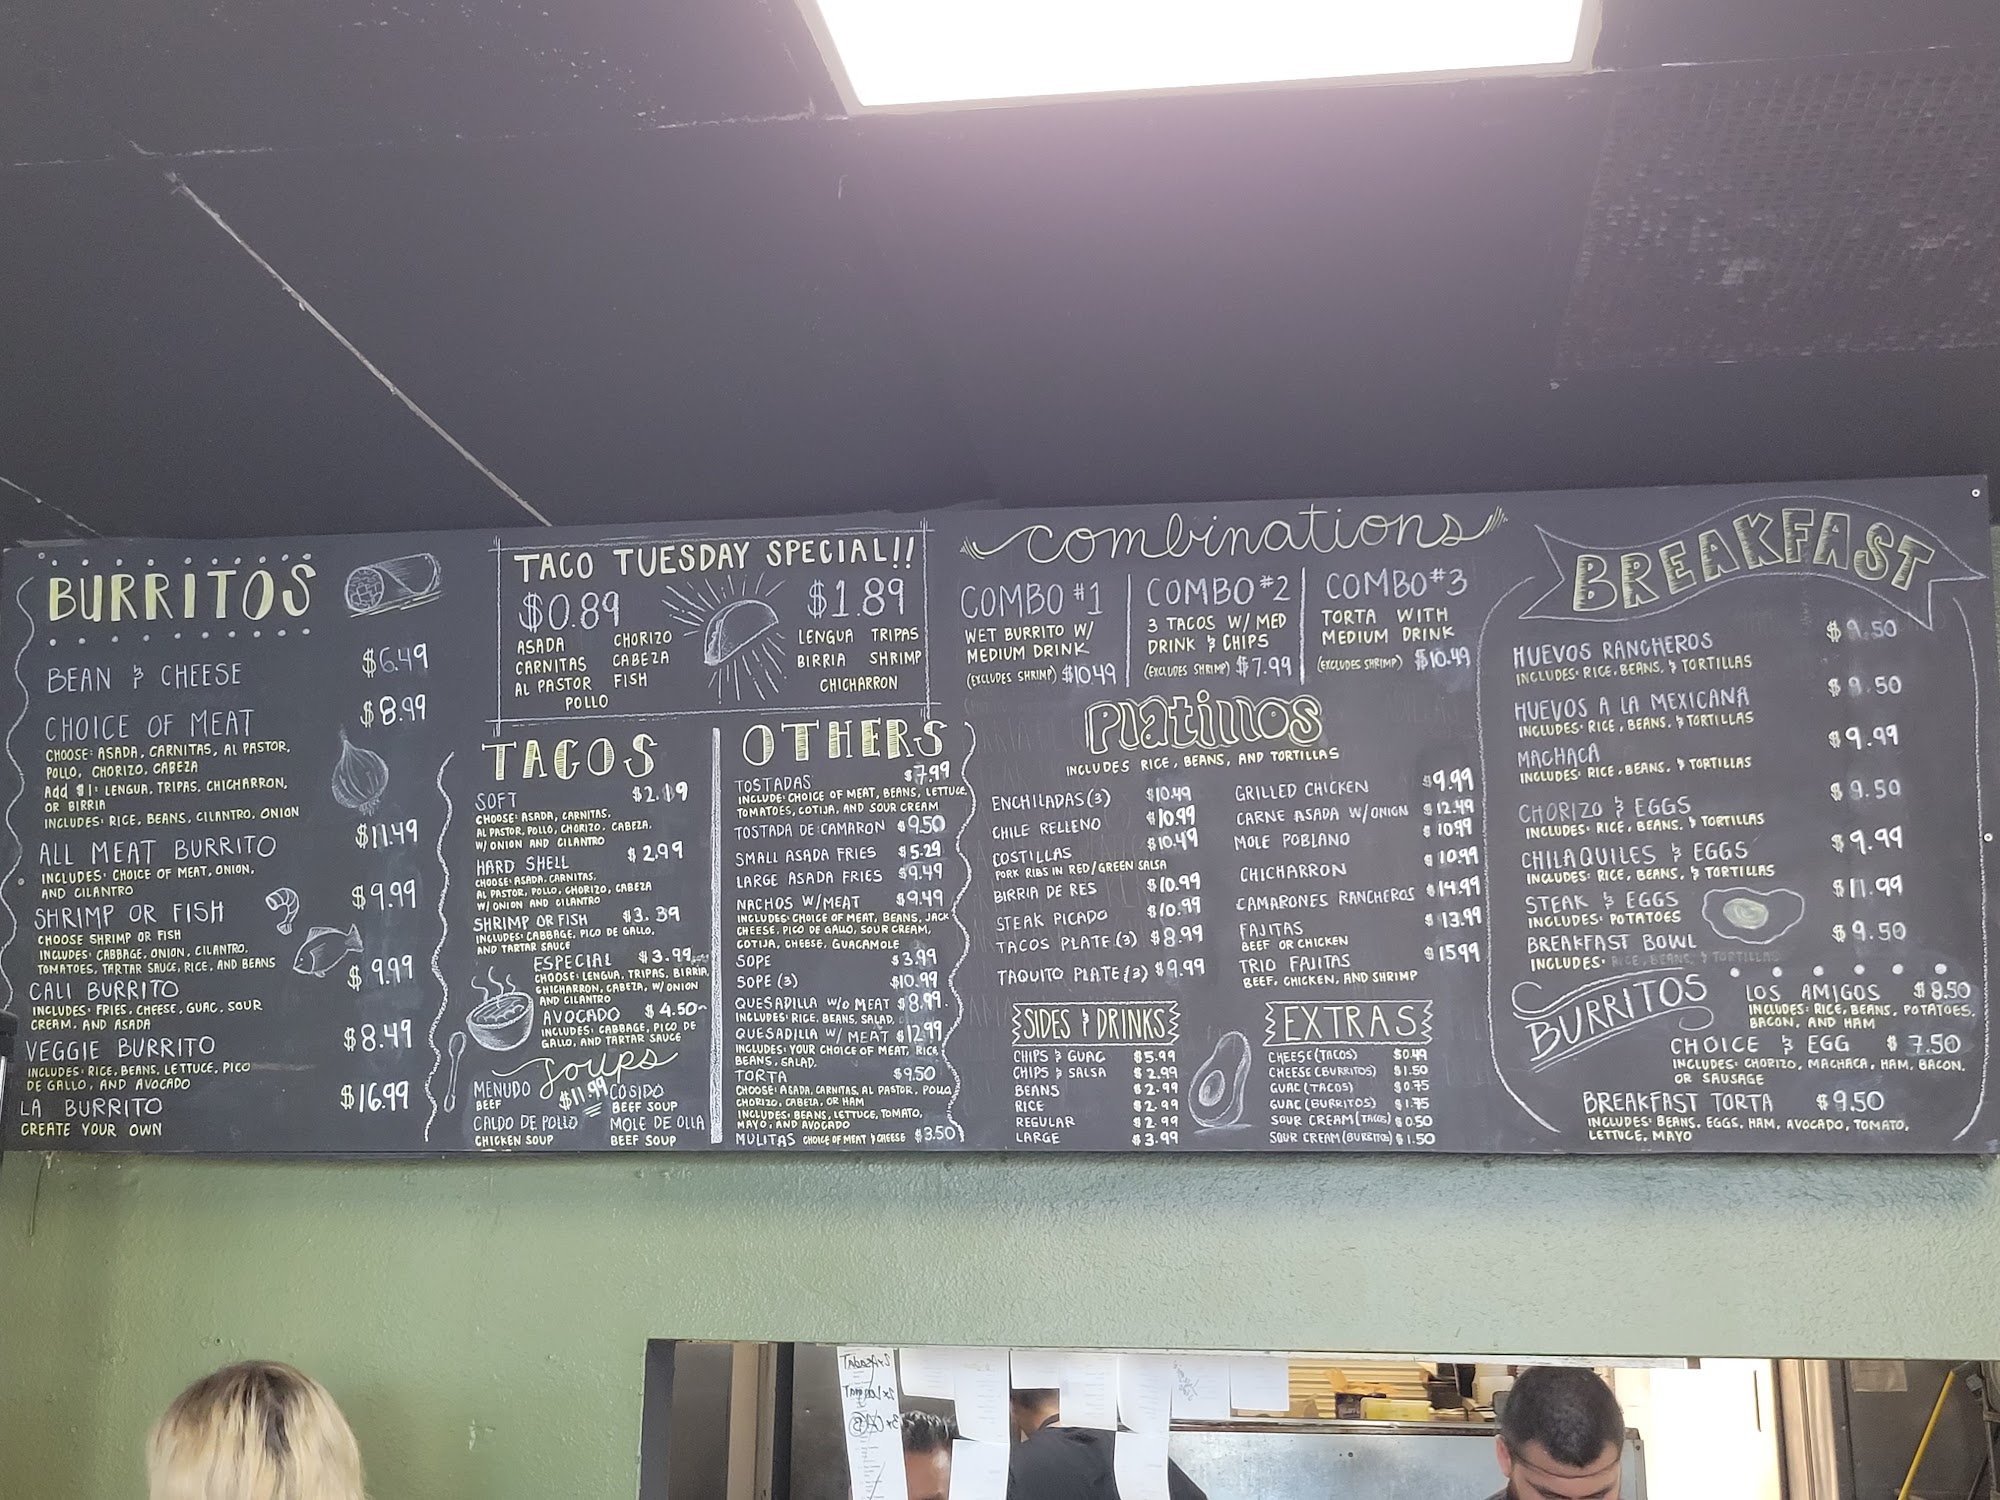 BURRITOS
BEAN & CHEESE $6.49
CHOICE OF MEAT $8.99
CHOOSE: ASADA, CARNITAS, AL PASTOR,
POLLO, CHORIZO, CABEZA
Add $1: LENGUA, TRIPAS, CHICHARRON,
OR BIRRIA
INCLUDES: RICE, BEANS, CILANTRO, ONION
ALL MEAT BURRITO $11.49
INCLUDES: CHOICE OF MEAT, ONION,
AND CILANTRO
SHRIMP OR FISH $9.99
CHOOSE SHRIMP OR FISH
INCLUDES: CABBAGE, ONION, CILANTRO,
TOMATOES, TARTAR SAUCE, RICE, AND BEANS
CALI BURRITO $9.99
INCLUDES: FRIES, CHEESE, GUAC, SOUR
CREAM, AND ASADA
VEGGIE BURRITO $8.49
INCLUDES: RICE, BEANS, LETTUCE, PICO
DE GALLO, AND AVOCADO
LA BURRITO $16.99
CREATE YOUR OWN
TACO TUESDAY SPECIAL!!
$0.89
ASADA CHORIZO
CARNITAS CABEZA
AL PASTOR FISH
POLLO
$1.89
LENGUA TRIPAS
BIRRIA SHRIMP
CHICHARRON
TACOS
SOFT $2.19
CHOOSE: ASADA, CARNITAS,
AL PASTOR, POLLO, CHORIZO, CABEZA,
W/ ONION AND CILANTRO
HARD SHELL $2.99
CHOOSE: ASADA, CARNITAS,
AL PASTOR, POLLO, CHORIZO, CABEZA
W/ ONION AND CILANTRO
SHRIMP OR FISH $3.39
INCLUDES: CABBAGE, PICO DE GALLO,
AND TARTAR SAUCE
ESPECIAL $3.99
CHOOSE: LENGUA, TRIPAS, BIRRIA,
CHICHARRON, CABEZA, W/ ONION
AND CILANTRO
AVOCADO $4.50
INCLUDES: CABBAGE, PICO DE
GALLO, AND TARTAR SAUCE
SOUPS
$11.99
MENUDO COSIDO
BEEF BEEF SOUP
CALDO DE POLLO MOLE DE OLLA
CHICKEN SOUP BEEF SOUP
OTHERS
TOSTADAS $7.99
INCLUDE: CHOICE OF MEAT, BEANS, LETTUCE,
TOMATOES, COTIJA, AND SOUR CREAM
TOSTADA DE CAMARON $9.50
SMALL ASADA FRIES $5.29
LARGE ASADA FRIES $9.49
NACHOS W/MEAT $9.49
INCLUDES: CHOICE OF MEAT, BEANS, JACK
CHEESE, PICO DE GALLO, SOUR CREAM,
COTIJA, CHEESE, GUACAMOLE
SOPE $3.99
SOPE (3) $10.99
QUESADILLA W/O MEAT $8.99
INCLUDES: RICE, BEANS, SALAD,
QUESADILLA W/ MEAT $12.99
INCLUDES: YOUR CHOICE OF MEAT, RICE
BEANS, SALAD,
TORTA $9.50
CHOOSE: ASADA, CARNITAS, AL PASTOR, POLLO
CHORIZO, CABEZA, OR HAM
INCLUDES: BEANS, LETTUCE, TOMATO,
MAYO, AND AVOCADO
MULITAS CHOICE OF MEAT & CHEESE $3.50
combinations
COMBO #1
WET BURRITO W/
MEDIUM DRINK
(EXCLUDES SHRIMP) $10.49
COMBO #2
3 TACOS W/ MED
DRINK & CHIPS
(EXCLUDES SHRIMP) $7.99
COMBO #3
TORTA WITH
MEDIUM DRINK
(EXCLUDES SHRIMP) $10.49
Platillos
INCLUDES RICE, BEANS, AND TORTILLAS
ENCHILADAS (3) $10.49
CHILE RELLENO $10.99
COSTILLAS $10.49
PORK RIBS IN RED/GREEN SALSA
BIRRIA DE RES $10.99
STEAK PICADO $10.99
TACOS PLATE (3) $8.99
TAQUITO PLATE (3) $9.99
GRILLED CHICKEN $9.99
CARNE ASADA W/ONION $12.49
MOLE POBLANO $10.99
CHICHARRON $10.99
CAMARONES RANCHEROS $14.99
FAJITAS $13.99
BEEF OR CHICKEN
TRIO FAJITAS $15.99
BEEF, CHICKEN, AND SHRIMP
SIDES & DRINKS
CHIPS & GUAC $5.99
CHIPS & SALSA $2.99
BEANS $2.99
RICE $2.99
REGULAR $2.99
LARGE $3.99
EXTRAS
CHEESE (TACOS) $0.49
CHEESE (BURRITOS) $1.50
GUAC (TACOS) $0.75
GUAC (BURRITOS) $1.75
SOUR CREAM (TACOS) $0.50
SOUR CREAM (BURRITOS) $1.50
BREAKFAST
HUEVOS RANCHEROS $9.50
INCLUDES: RICE, BEANS, & TORTILLAS
HUEVOS A LA MEXICANA $9.50
INCLUDES: RICE, BEANS, & TORTILLAS
MACHACA $9.99
INCLUDES: RICE, BEANS, & TORTILLAS
CHORIZO & EGGS $9.50
INCLUDES: RICE, BEANS, & TORTILLAS
CHILAQUILES & EGGS $9.99
INCLUDES: RICE, BEANS, & TORTILLAS
STEAK & EGGS $11.99
INCLUDES: POTATOES
BREAKFAST BOWL $9.50
INCLUDES: RICE, BEANS, & TORTILLAS
BURRITOS
LOS AMIGOS $8.50
INCLUDES: RICE, BEANS, POTATOES,
BACON, AND HAM
CHOICE & EGG $7.50
INCLUDES: CHORIZO, MACHACA, HAM, BACON,
OR SAUSAGE
BREAKFAST TORTA $9.50
INCLUDES: BEANS, EGGS, HAM, AVOCADO, TOMATO,
LETTUCE, MAYO